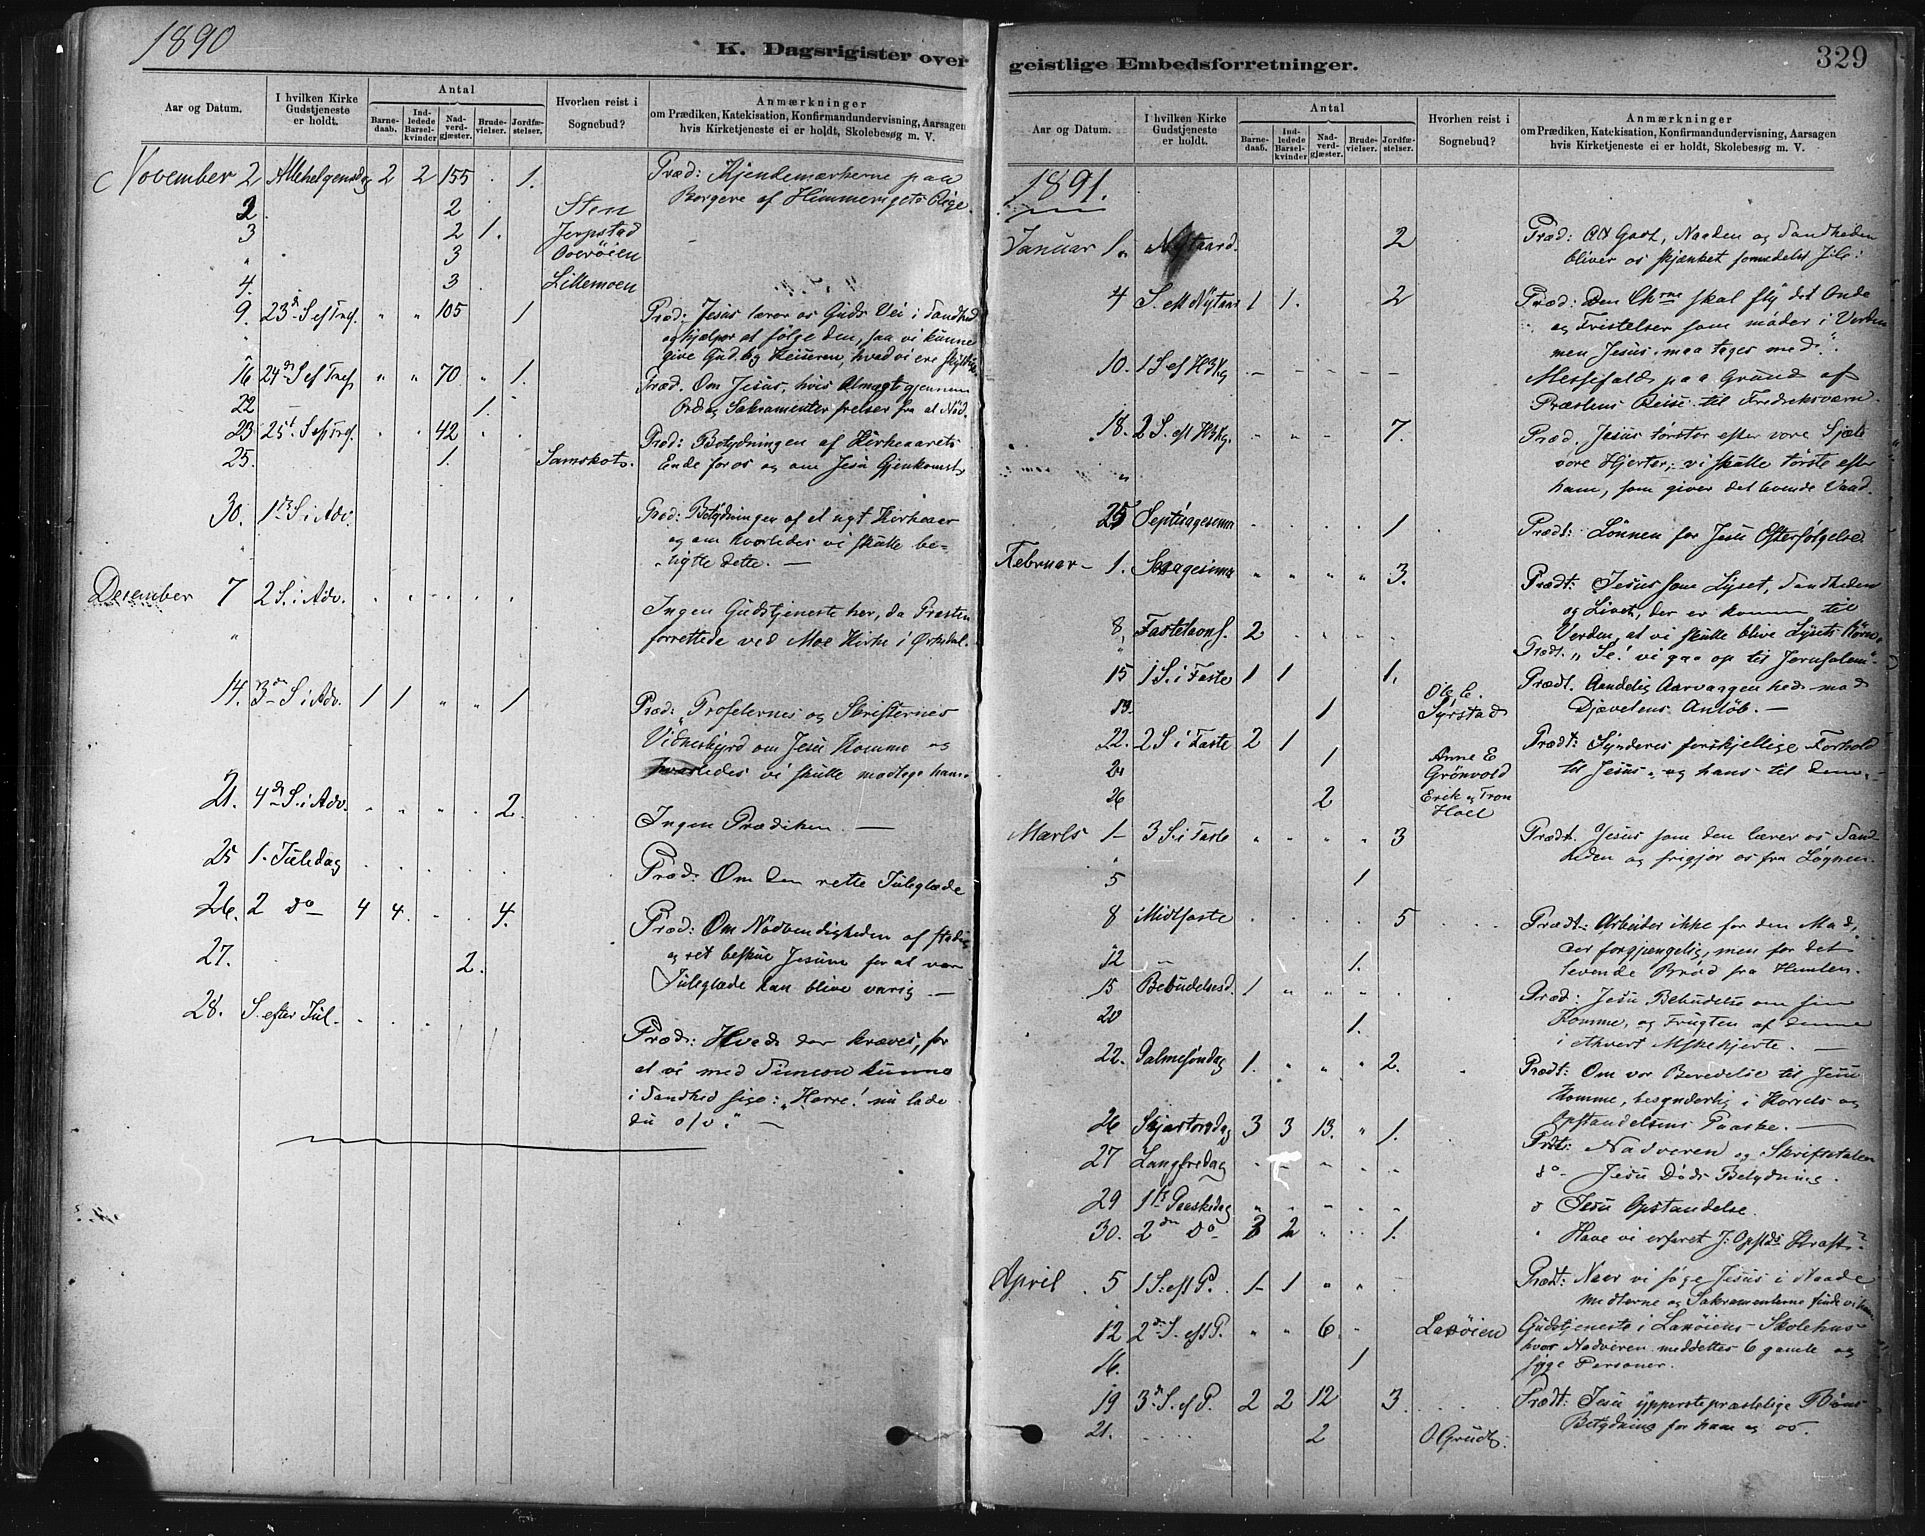 1890
K. Dagsrigister over
Aar og Datum.
I hvilken Kirke Gudstjeneste er holdt.
Antal
Barne-daab.
Ind-ledede Barsel-kvinder
Nad-verd-gjæster.
Brude-vielser.
Jordfæ-stelser.
Hvorhen reist i Sognebud?
Anmærkninger
om Prædiken, Katekisation, Konfirmandundervisning, Aarsagen
hvis Kirketjeneste ei er holdt, Skolebesøg m. V.
November 2 Allehelgensdag 2 2 155 . 1. Præd: Kjendemærkerne paa
Borgere af Himmerigets Rige.
2. 2 Sten
3 2 1. Jerpstad
" 3
4. 3 Lillemoen
9. 23d S ef Tref. " " 105 1 Præd: Jesus lærer os Guds Vei i Sandhed
og hjælper at følge den, saa vi kunne
give Gud og Keiseren, hvad vi ere skyldige
16 24d S ef Tref " " 70 " 1. Præd. Om Jesus, hvis Almagt gjennem
Ord og Sakramenter frelser fra al Nød.
22 1.
23 25d S ef Tref. 42 Præd: Betydningen af Kirkeaarets
25. 1. Samskot. Ende for os og om Jesu Gjenkomst
30. 1te S i Adv. Præd: Betydningen af et nyt Kirkeaar
og om hvorledes vi skulle be-
nytte dette. —
December 7 2 S. i Adv. Ingen Gudstjeneste her, da Præsten
" forrettede ved Moe Kirke i Orkedal.
14. 3die S i Adv. 1 1 " " 1 Præd: "Profeternes og Skrifternes
Vidnesbyrd om Jesu Komme og
hvorledes vi skulle modtage ham.
21. 4de S i Adv. 2. Ingen Prædiken. —
25 1. Juledag Præd: Om den rette Juleglæde
26. 2 do 4 4. 4. Præd: Om Nødvendigheden af stadig
27. 2. og ret beskue Jesum for at vor
Juleglæde kan blive varig —
28. S. efter Jul. Præd: Hvad der kræves, for
at vi med Simeon kunne
i Sandhed sige: "Herre! nu lade
du o/v." —
geistlige Embedsforretninger.
329
Aar og Datum.
I hvilken Kirke Gudstjeneste er holdt.
Antal
Barne-daab.
Ind-ledede Barsel-kvinder
Nad-verd-gjæster.
Brude-vielser.
Jordfæ-stelser.
Hvorhen reist i Sognebud?
Anmærkninger
om Prædiken, Katekisation, Konfirmandundervisning, Aarsagen
hvis Kirketjeneste ei er holdt, Skolebesøg m. V.
1891.
Januar 1. Nytaarsd. 2 Præd: At Gave, Naaden og Sandheden
bliver os skjænket
4 S. eft Nytaar 1 1. 2 Præd: Den Chrne skal fly det Onde
og Fristelser som møder i Verden
men Jesus maa tages med".
10. 1 S ef H3Kg – – – – – Messefald paa Grund af
Præstens Reise til Fredriksværn.
18. 2 S. eft H3Kg. " " 7. Præd. Jesus tørster efter vore Sjæle
vore Hjerter; vi skulle tørste efter
" ham, som giver det levende Vand.
25 Septuagesima 1. Prædt: Lønnen for Jesu Efterfølgelse
Februar – 1. Sexagesima " " " " 3. Prædt: Jesus som Lyset, Sandheden
og Livet, der er kommen til
Verden, at vi skulle blive Lysets Børn
8 Fastelavns. 2 Prædt. "Se! vi gaa op til Jerusalem".
15 1 S. i Faste 1 1 1. Prædt. Aandelig Aarvaagenhed mod
19. 1 Ole E. Syrstad Djævelens Anløb. —
22. 2 S i Faste 2 1 Prædt: Synderes forskjellige Forhold
24 1 Anne E Grönvold til Jesus, og hans til dem. —
26 2 Erik og Tron Hoel
Marts 1 – 3 S. i Faste " " " " 3 Prædt. Jesus som den lærer os Sand-
heden og frigjør os fra Løgnen.
5 1
8 Midtfaste 5 Prædt: Arbeider ikke for den Mad,
der forgjængelig, men for det
12 – 1. levende Brød fra Himlen.
15 Bebudelsesd. 1 " " " Præd: Jesu Bebudelse om sin
20 1. Komme, og Frugten af denne
i ethvert Mskehjerte. —
22. Palmesøndag 1. " " " 2. Prædt: Om vor Beredelse til Jesu
Komme, besynderlig i Korrets og
Opstandelsens Paaske. —
26 Skjærtorsdag 3 3 13. " 1. Prdt: Nadveren og Skriftetalen
27 Langfredag do – Jesu Døds Betydning.
29 1te Paaskedag d Jesu Opstandelse.
30. 2den do 3 2 1. " Have vi erfaret J: Opstds Kraft?
April 5 1 S. eft P. 1 1 " " Prædt: Naar vi søge Jesus i Naade
midlerne og Sakramenterne finde vi ham
12 2d S. eft P. " " 6 Laxöien Gudstjeneste i Laxöiens Skolehus
hvor Nadveren meddeltes 6 gamle og
16. 1 syge Personer.
19 3d S. ef P. 2 2 12 3. Prædt: Jesu ypperstepræstelige Bøns
21. 2 O Grudt. Betydning for ham og os.